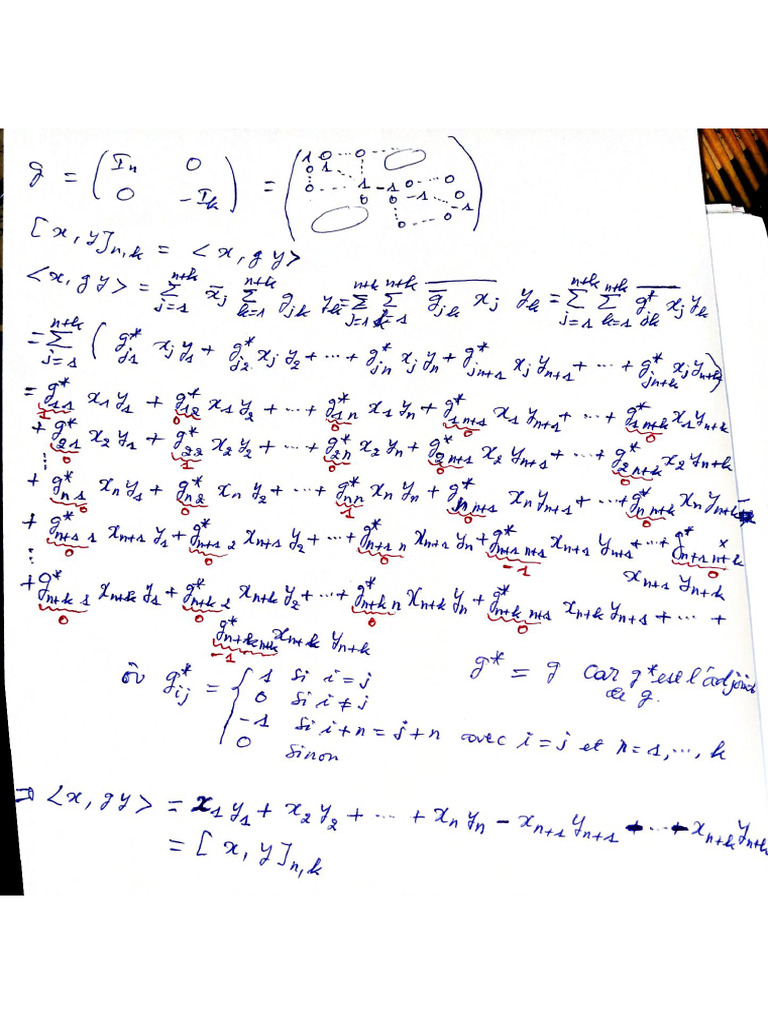 g = ( I_n 0 ; 0 -I_k ) = ( 1 0 ... 0 ; 0 1 ; 0 ... 1 -1 0 ... 0 ; 0 0 -1 0 ; 0 ... 0 -1 )
[x, y]_{n,k} = < x, g y >
< x, g y > = Σ_{j=1}^{n+k} x̄_j Σ_{k=1}^{n+k} g_{jk} y_k = Σ_{j=1}^{n+k} Σ_{k=1}^{n+k} \overline{ḡ_{jk} x_j} y_k = Σ_{j=1}^{n+k} Σ_{k=1}^{n+k} \overline{g^*_{jk} x_j} y_k
= Σ_{j=1}^{n+k} ( g^*_{j1} x_j y_1 + g^*_{j2} x_j y_2 + ... + g^*_{jn} x_j y_n + g^*_{jn+1} x_j y_{n+1} + ... + g^*_{jn+k} x_j y_{n+k} )
= g^*_{11} x_1 y_1 + g^*_{12} x_1 y_2 + ... + g^*_{1n} x_1 y_n + g^*_{1n+1} x_1 y_{n+1} + ... + g^*_{1n+k} x_1 y_{n+k}
1 0 0 0 0
+ g^*_{21} x_2 y_1 + g^*_{22} x_2 y_2 + ... + g^*_{2n} x_2 y_n + g^*_{2n+1} x_2 y_{n+1} + ... + g^*_{2n+k} x_2 y_{n+k}
0 1 0 0 0
⋮
+ g^*_{n1} x_n y_1 + g^*_{n2} x_n y_2 + ... + g^*_{nn} x_n y_n + g^*_{n n+1} x_n y_{n+1} + ... + g^*_{n n+k} x_n y_{n+k}
0 0 1 0 0
+ g^*_{n+1 1} x_{n+1} y_1 + g^*_{n+1 2} x_{n+1} y_2 + ... + g^*_{n+1 n} x_{n+1} y_n + g^*_{n+1 n+1} x_{n+1} y_{n+1} + ... + g^*_{n+1 n+k} ×
0 0 0 -1 0
x_{n+1} y_{n+k}
⋮
+ g^*_{n+k 1} x_{n+k} y_1 + g^*_{n+k 2} x_{n+k} y_2 + ... + g^*_{n+k n} x_{n+k} y_n + g^*_{n+k n+1} x_{n+k} y_{n+1} + ... +
0 0 0 0
g^*_{n+k n+k} x_{n+k} y_{n+k}
-1
où g^*_{ij} = { 1 si i = j
0 si i ≠ j
-1 si i+n = j+n avec i = j et n = 1, ..., k
0 sinon
g^* = g car g^* est l'adjoint
de g.
⇒ < x, g y > = x_1 y_1 + x_2 y_2 + ... + x_n y_n - x_{n+1} y_{n+1} - ... - x_{n+k} y_{n+k}
= [ x, y ]_{n,k}